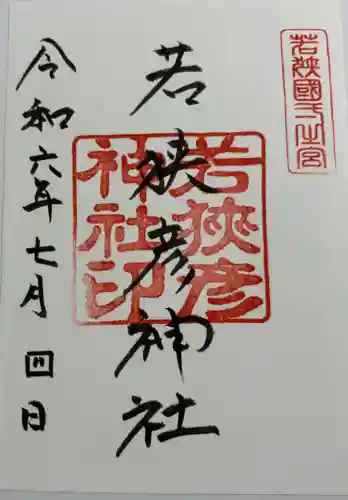 若狭國一之宮
若狭彦神社
若狹彦
神社印
令和六年七月四日